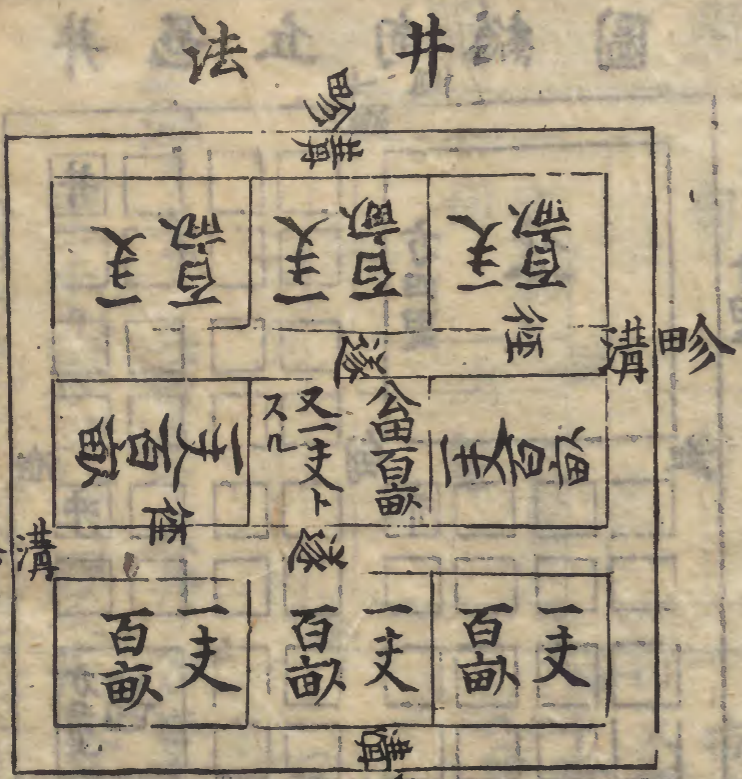 井法
畛
溝
一夫百畝
一夫百畝
一夫百畝
徑
溝畛
遂
一夫百畝
公田百畝
又一夫ト
スル
一夫百畝
徑
溝
遂
一夫百畝
一夫百畝
一夫百畝
溝